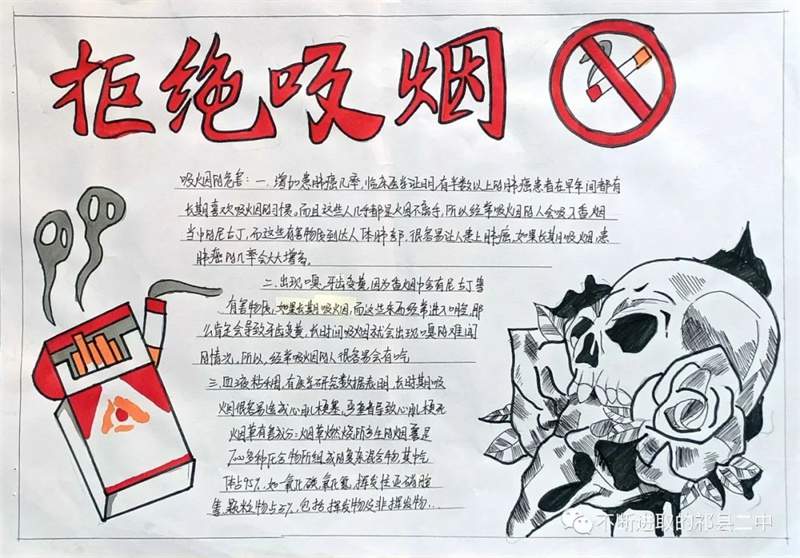 拒绝吸烟
吸烟的危害:一、增加患肺癌几率,临床医学证明,有半数以上的肺癌患者在早年间都有
长期喜欢吸烟的习惯。而且这些人几乎都是火烟不离手,所以经常吸烟的人会吸入香烟
当中的尼古丁,而这些有害物质到达人体肺部,很容易让人患上肺癌。如果长期吸烟,患
肺癌的几率会大大增高。
二、出现口臭、牙齿变黄,因为香烟中含有尼古丁等
有害物质,如果长期吸烟,而这些东西经常进入口腔,那
么肯定会导致牙齿变黄,长时间吸烟就会出现口臭的难闻
的情况,所以,经常吸烟的人很容易会有口吃
三、血液粘稠,有医学研究数据表明,长时期吸
烟很容易造成心肌梗塞,严重者导致心肌梗死
烟草有害成分:烟草燃烧所产生的烟雾是
7000多种化合物所组成的复杂混合物,其中气
体占95%,如一氧化碳、氧化氮、挥发性亚硝胺
等,颗粒物占5%,包括挥发物及非挥发物...
不断进取的祁县二中